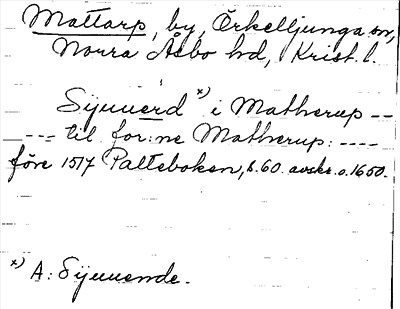 Mattarp, by, Örkelljunga sn,
Norra Åsbo hd, Krist. l.
Sijuuerd x) i Matherup --
--- til for:ne Matherup: ----
före 1517 Palteboken, s. 60. avskr. o. 1650.
x) A: Sijuuende.